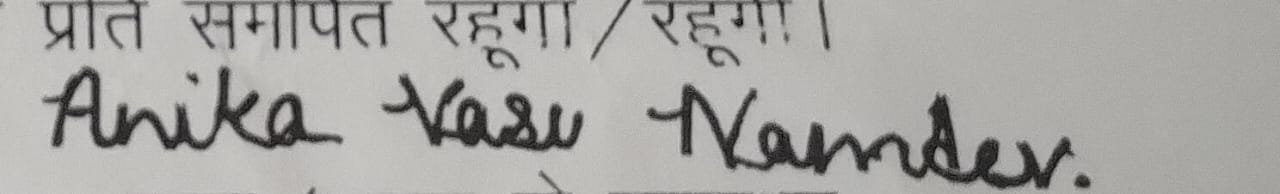 प्रति समर्पित रहूँगा / रहूँगी।
Anika Vasu Namdev.